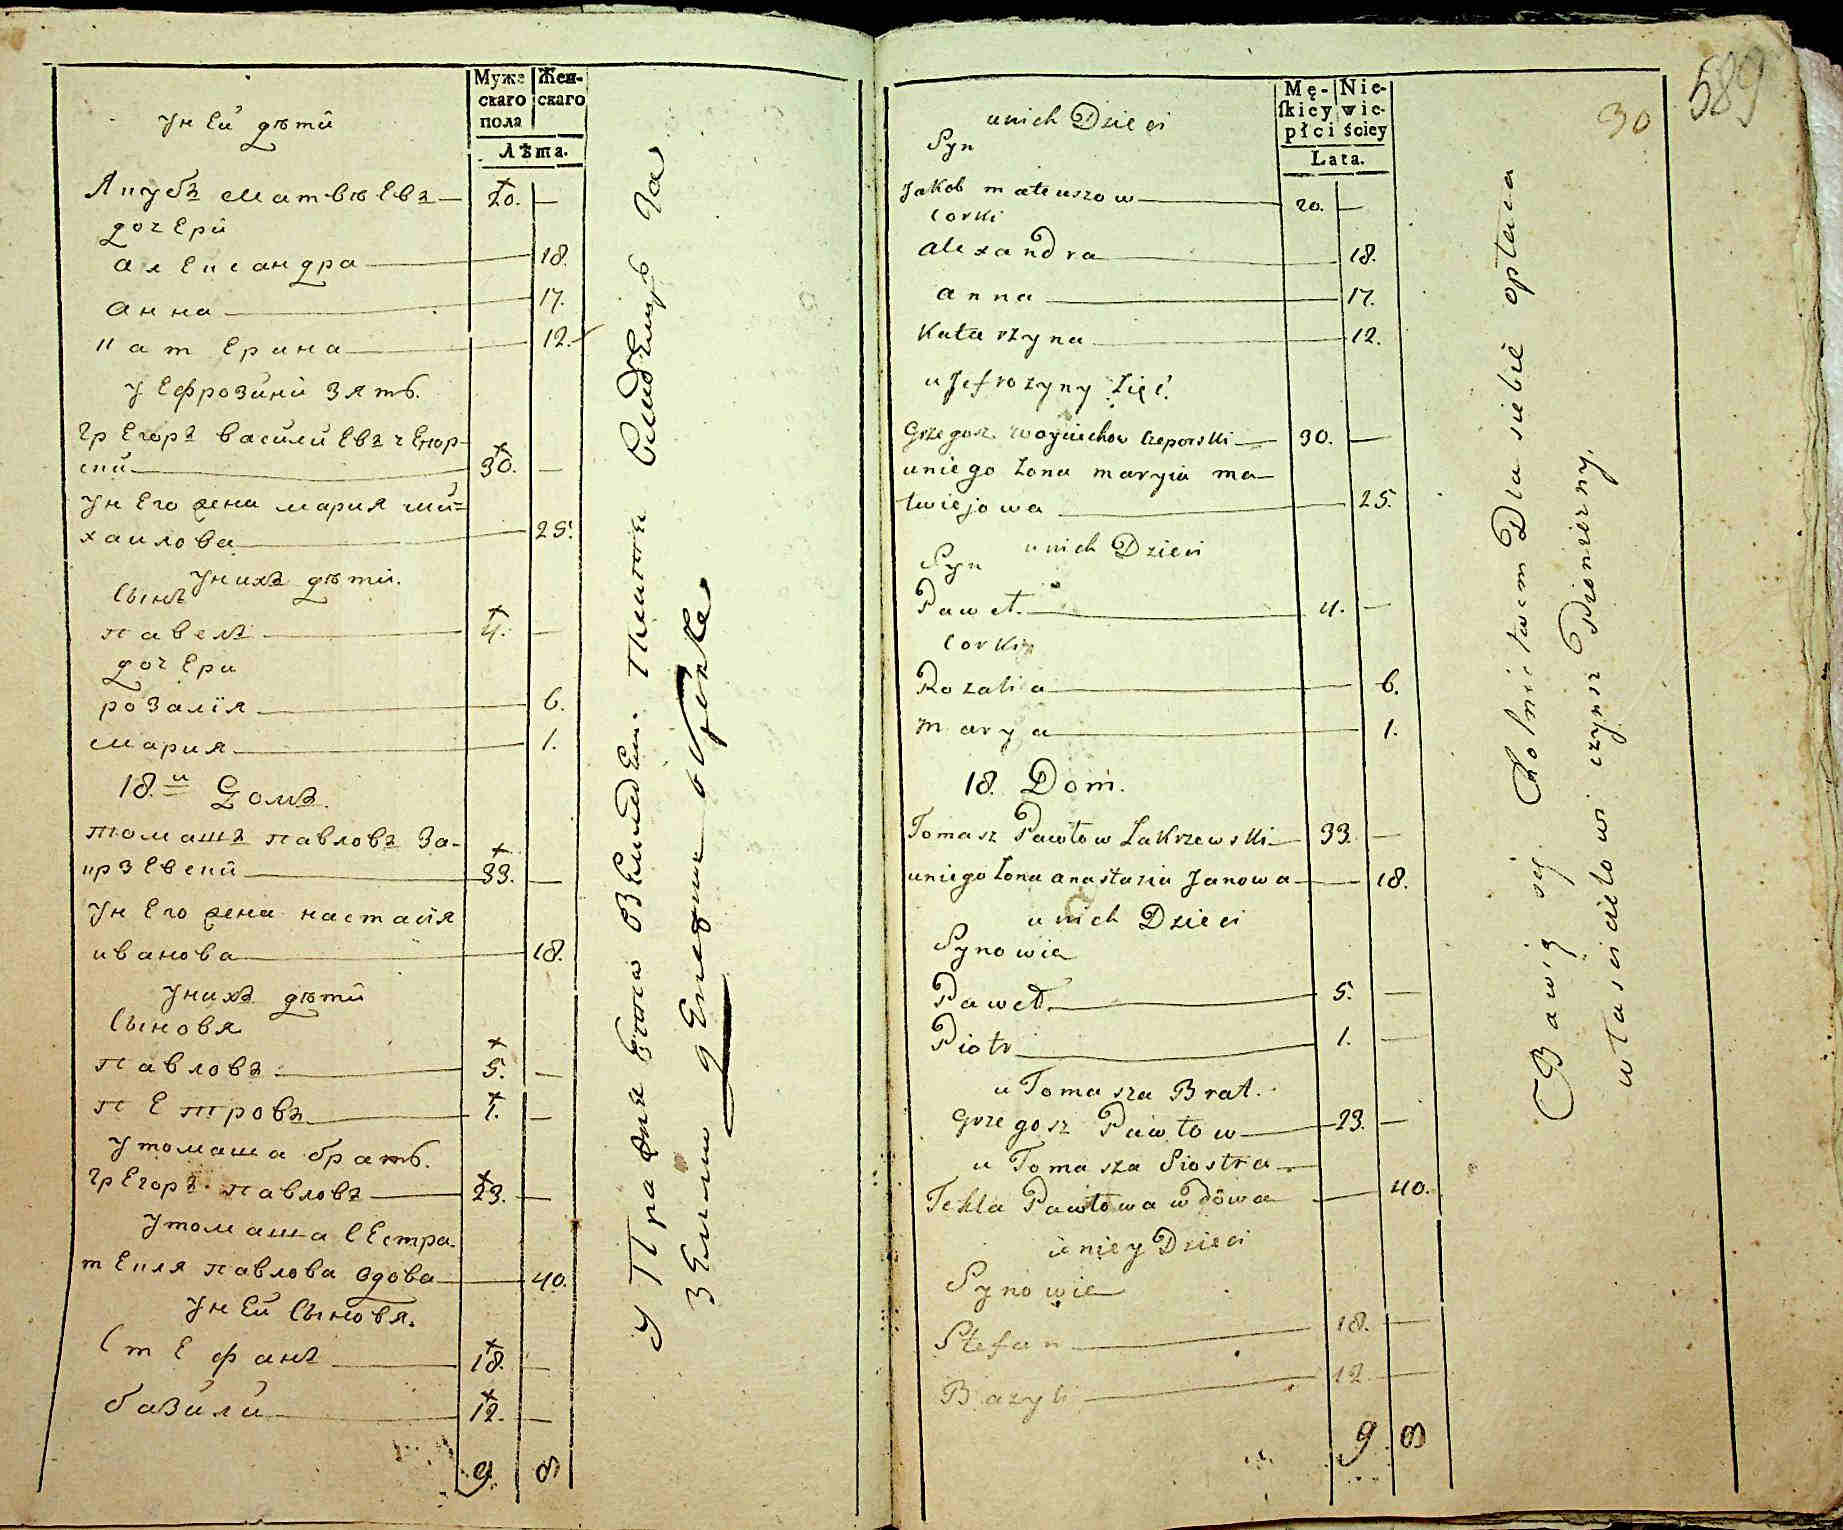 Муже
скаго
пола
Жен-
скаго
Лѣта.
у ней дѣти
Якубъ Матвѣевъ 20. —
дочери
александра 18.
анна 17.
катерина 12.
у Ефрозини зять.
Грегоръ василиевъ чепор-
ски 30. —
у него жена мария ми=
хаилова 25.
у нихъ дѣти.
Сынъ
павелъ 4. —
дочери
розалія 6.
мария 1.
18.й Домъ.
томашъ павловъ За-
крзевски 33. —
у него жена настасия
иванова 18.
у нихъ дѣти
Сыновя
павловъ 5. —
петровъ 1. —
у томаша брать.
Грегоръ павловъ 23. —
у томаша сестра
текля павлова вдова 40.
у ней Сыновя.
Стефанъ 18. —
базили 12. —
9. 8
земли
589
30
Mę-
skiey
płci
Nie-
wie-
ściey
Lata.
u nich Dzieci
Syn
Jakob mateuszow 20. —
Corki
alexandra 18.
anna 17.
Katarzyna 12.
u Jefrozyny Zięć.
Grzegosz woyciechow Czeporski 30. —
u niego Zona maryia ma
twiejowa 25.
u nich Dzieci
Syn
Paweł. 4. —
Corki
Rozalia 6.
marya 1.
18. Dom.
Tomasz Pawłow Zakrzewski 33. —
u niego Zona anastazia Janowa 18.
u nich Dzieci
Synowie
Paweł 5. —
Piotr 1. —
u Tomasza Brat.
Grzegosz Pawłow 23. —
u Tomasza Siostra
Tekla Pawłowa wdowa 40.
u niey Dzieci
Synowie
Stefan 18. —
Bazyli 12 —
9 8
Bawią się Rolnictwem Dla siebie opłaca
własicielowi czynsz Pieniezny.